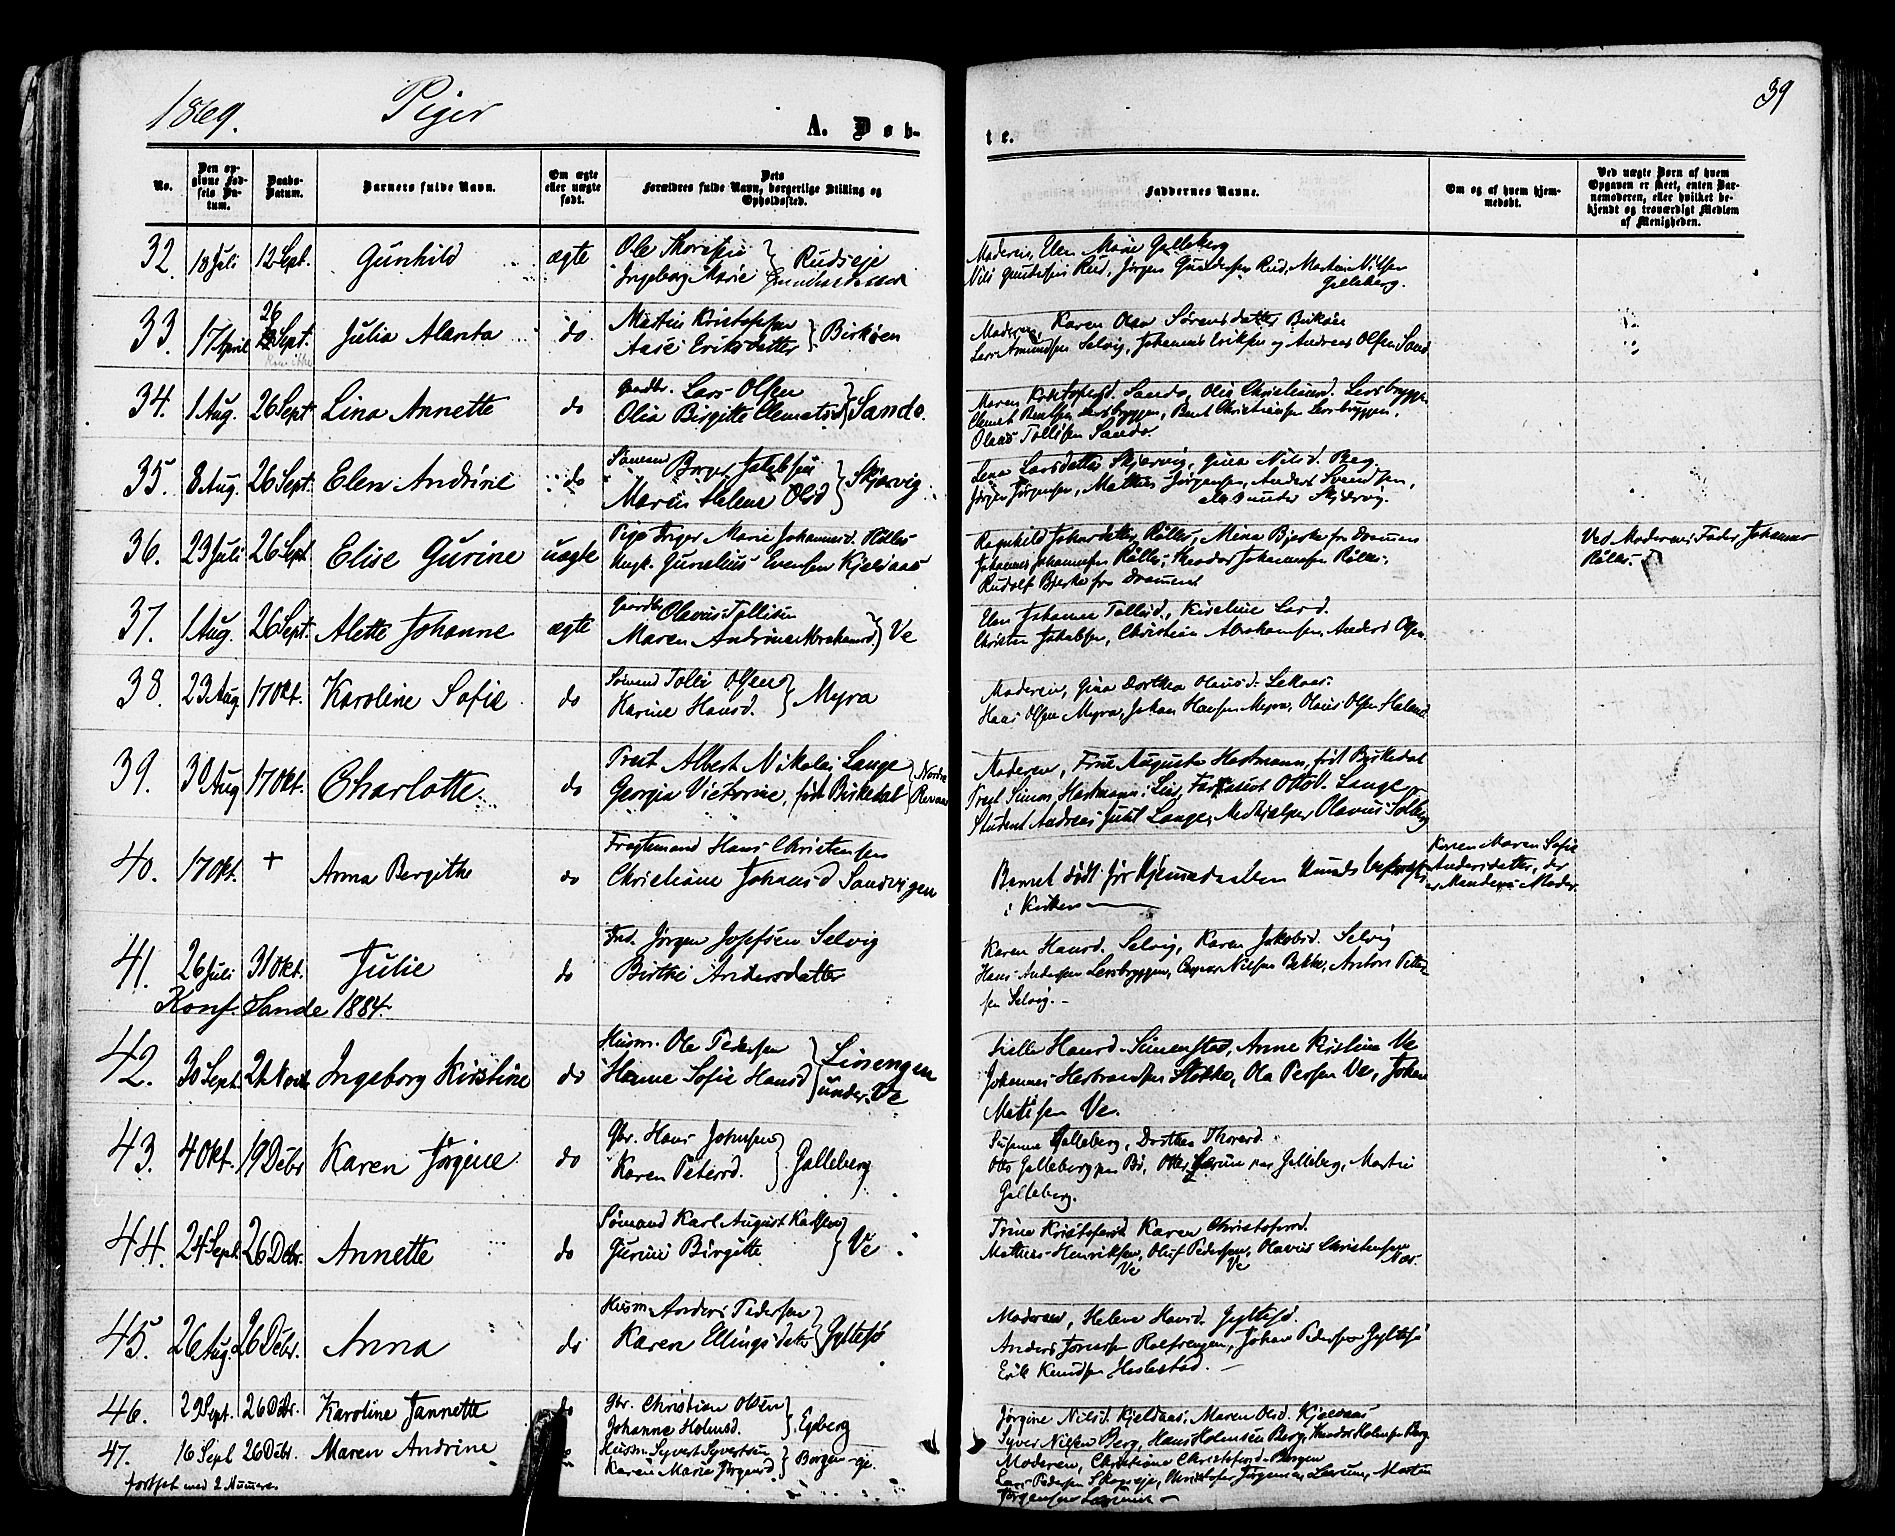 1869. Piger
A. Døb-
te.
39
No.
Den op-
givne Fød-
sels Da-
tum.
Daabs-
Datum.
Barnets fulde Navn.
Om ægte
eller uægte
født.
Dets
Forældres fulde Navn, borgerlige Stilling og
Opholdssted.
Faddernes Navne.
Om og af hvem hjem-
medøbt.
Ved uægte Børn af hvem
Opgaven er skeet, enten Bar-
nemoderen, eller hvilket be-
kjendt og troværdigt Medlem
af Menigheden.
32. 18 Juli 12 Sept. Gunhild ægte Ole
Ingeborg Marie } Rudseje
Moderen, Elen Marie Galleberg
Rud, Jørgen Gundersen Rud, Martin Nilsen
Galleberg.
33. 17 April 26 Sept. Julia Alanta do Martin Kristoffersen
Aase Eriksdatter } Birkåsen
Moderen, Karen Olea Sørensdatter
Lars Amundsen Selvig, Johannes Eriksen og Andreas Olsen Sand
34. 1 Aug. 26 Sept. Lina Annette do Gaardbr. Lars Olsen
Olia Birgitte Clemetsd } Sando.
Maren Sando, Olia Christiansd. Lersbryggen
Clemet Bentsen Lersbryggen, Bent Christiansen Lersbryggen,
Olaus Tollefsen Sando.
35. 8 Aug. 26 Sept. Elen Andrine do Sømand Borger Jakobsen
Maren Helene Olsd } Skjærvig
Lena Larsdatter Skjærvig, Gina Nilsd. Berg
Jørgen Jørgensen, Mathias Jørgensen, Anders Svendsen,
Skjærvig.
36. 23 Juli 26 Sept. Elise Gurine uægte Pige Inger Marie Johannesd. Røllås
Ungk. Gunelius Evensen Kjeldaas
Ragnhild Johansdatter Røllås, Mina Bjerke fra Drammen
Johannes Johannesen Røllås, Theodor Johannesen Røllås,
Rudolf Bjerke fra Drammen
Ved Moderens Fader, Johannes
Røllås.
37. 1 Aug. 26 Sept. Alette Johanne ægte Gaardbr. Olavus Tollefsen
Maren Andrine Abrahamsd } Ve
Elen Johanne Tollefsd., Kirstine Larsd.
Christen Jakobsen, Christian Abrahamsen, Anders Olsen.
38. 23 Aug 17 Okt. Karoline Sofie do Sømand Tolle Olsen
Karine Hansd. } Myra
Moderen, Gina Dorthea Olausd.
Hans Olsen Myra, Johan Hansen Myra, Olaus Olsen
39. 30 Aug 17 Okt. Charlotte do Prest Albert Nikolai Lange
Georgia Victorine, født Birkedal } Nordre
Moderen, Frue Augusta Hartmann, født Birkedal
Prest Simon Hartmann i Lier, Otto V. Lange,
Student Andreas Juul Lange, Medhjælper Olavus Solberg
40. 17 Okt. + Anna Bergithe do Fragtemand Hans Christensen
Christiane Johansd Sandvigen
Barnet dødt før Hjemmedaaben
i Kirken
Konen Maren Sofie
Andersdatter, der
er Mandens Moder.
41. 26 Juli 31 Okt. Julie do Ind. Jørgen Josefsen Selvig
Birthe Andersdatter
Karen Hansd. Selvig, Karen Jakobsd. Selvig
Hans Andersen Lersbryggen, Nilsen Bakke, Anton Peter-
sen Selvig.
Konf. Sande 1884.
42. 30 Sept. 21 Novb. Ingeborg Kirstine do Husm. Ole Pedersen
Hanne Sofie Hansd } Linengen
under Ve
Hansd. Simenstad, Anne Kirstine Ve
Johannes Herbrandsen Stokke, Ola Persen Ve, Johan
Matisen Ve.
43. 4 Okt. 19 Debr Karen Jørgine do Gbr. Hans Johnsen
Karen Petersd. } Galleberg
Susanne Galleberg, Dorthea Thorersd.
Otto Galleberg paa Bø, Galleberg, Martin
Galleberg.
44. 24 Sept. 26 Debr. Annette do Sømand Karl August Karlsen
Gurine Birgitte } Ve
Trine Kristofersd Karen Christofersd.
Mathias Henriksen, Oluf Pedersen, Olavus Christensen
Ve Ve
45. 26 Aug. 26 Debr. Anna do Husm Anders Pedersen
Karen Ellingsdatter } Gyltesø
Moderen, Helene Hansd. Gyltesø.
Anders Jonsen, Johan Pedersen Gyltesø
Erik Knudsen Haslestad.
46. 29 Sept. 26 Debr. Karoline Jannette do Gbr. Christian Olsen
Johanne Holmsd. } Egeberg
Jørgine Nilsd Kjeldaas, Maren Olsd. Kjeldaas
Syver Nilsen Berg, Hans Holmsen Berg, Holmsen Berg
47. 16 Sept 26 Debr. Maren Andrine Husm. Syvert Syvertsen
Karen Marie Jørgensd } Borgen eje.
Moderen, Christiane Christofersd. Borgen
Lars Pedersen, Christofer Jørgensen Lerum, Martin
Jørgensen
fortsat med 2 Numere.